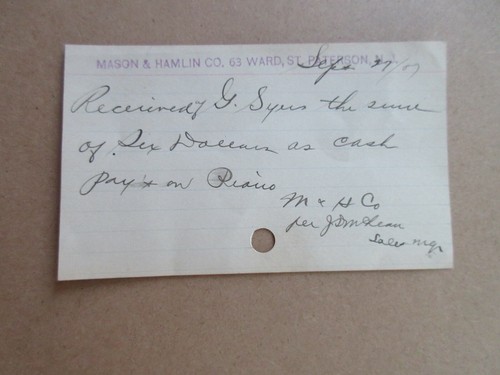 MASON & HAMLIN CO. 63 WARD, ST. PATERSON, N. J.
Sept 27/07
Received of G. Syms the sum
of Six Dollars as cash
pay't on Piano
M & H Co
per J D McLean
Sales Mgr